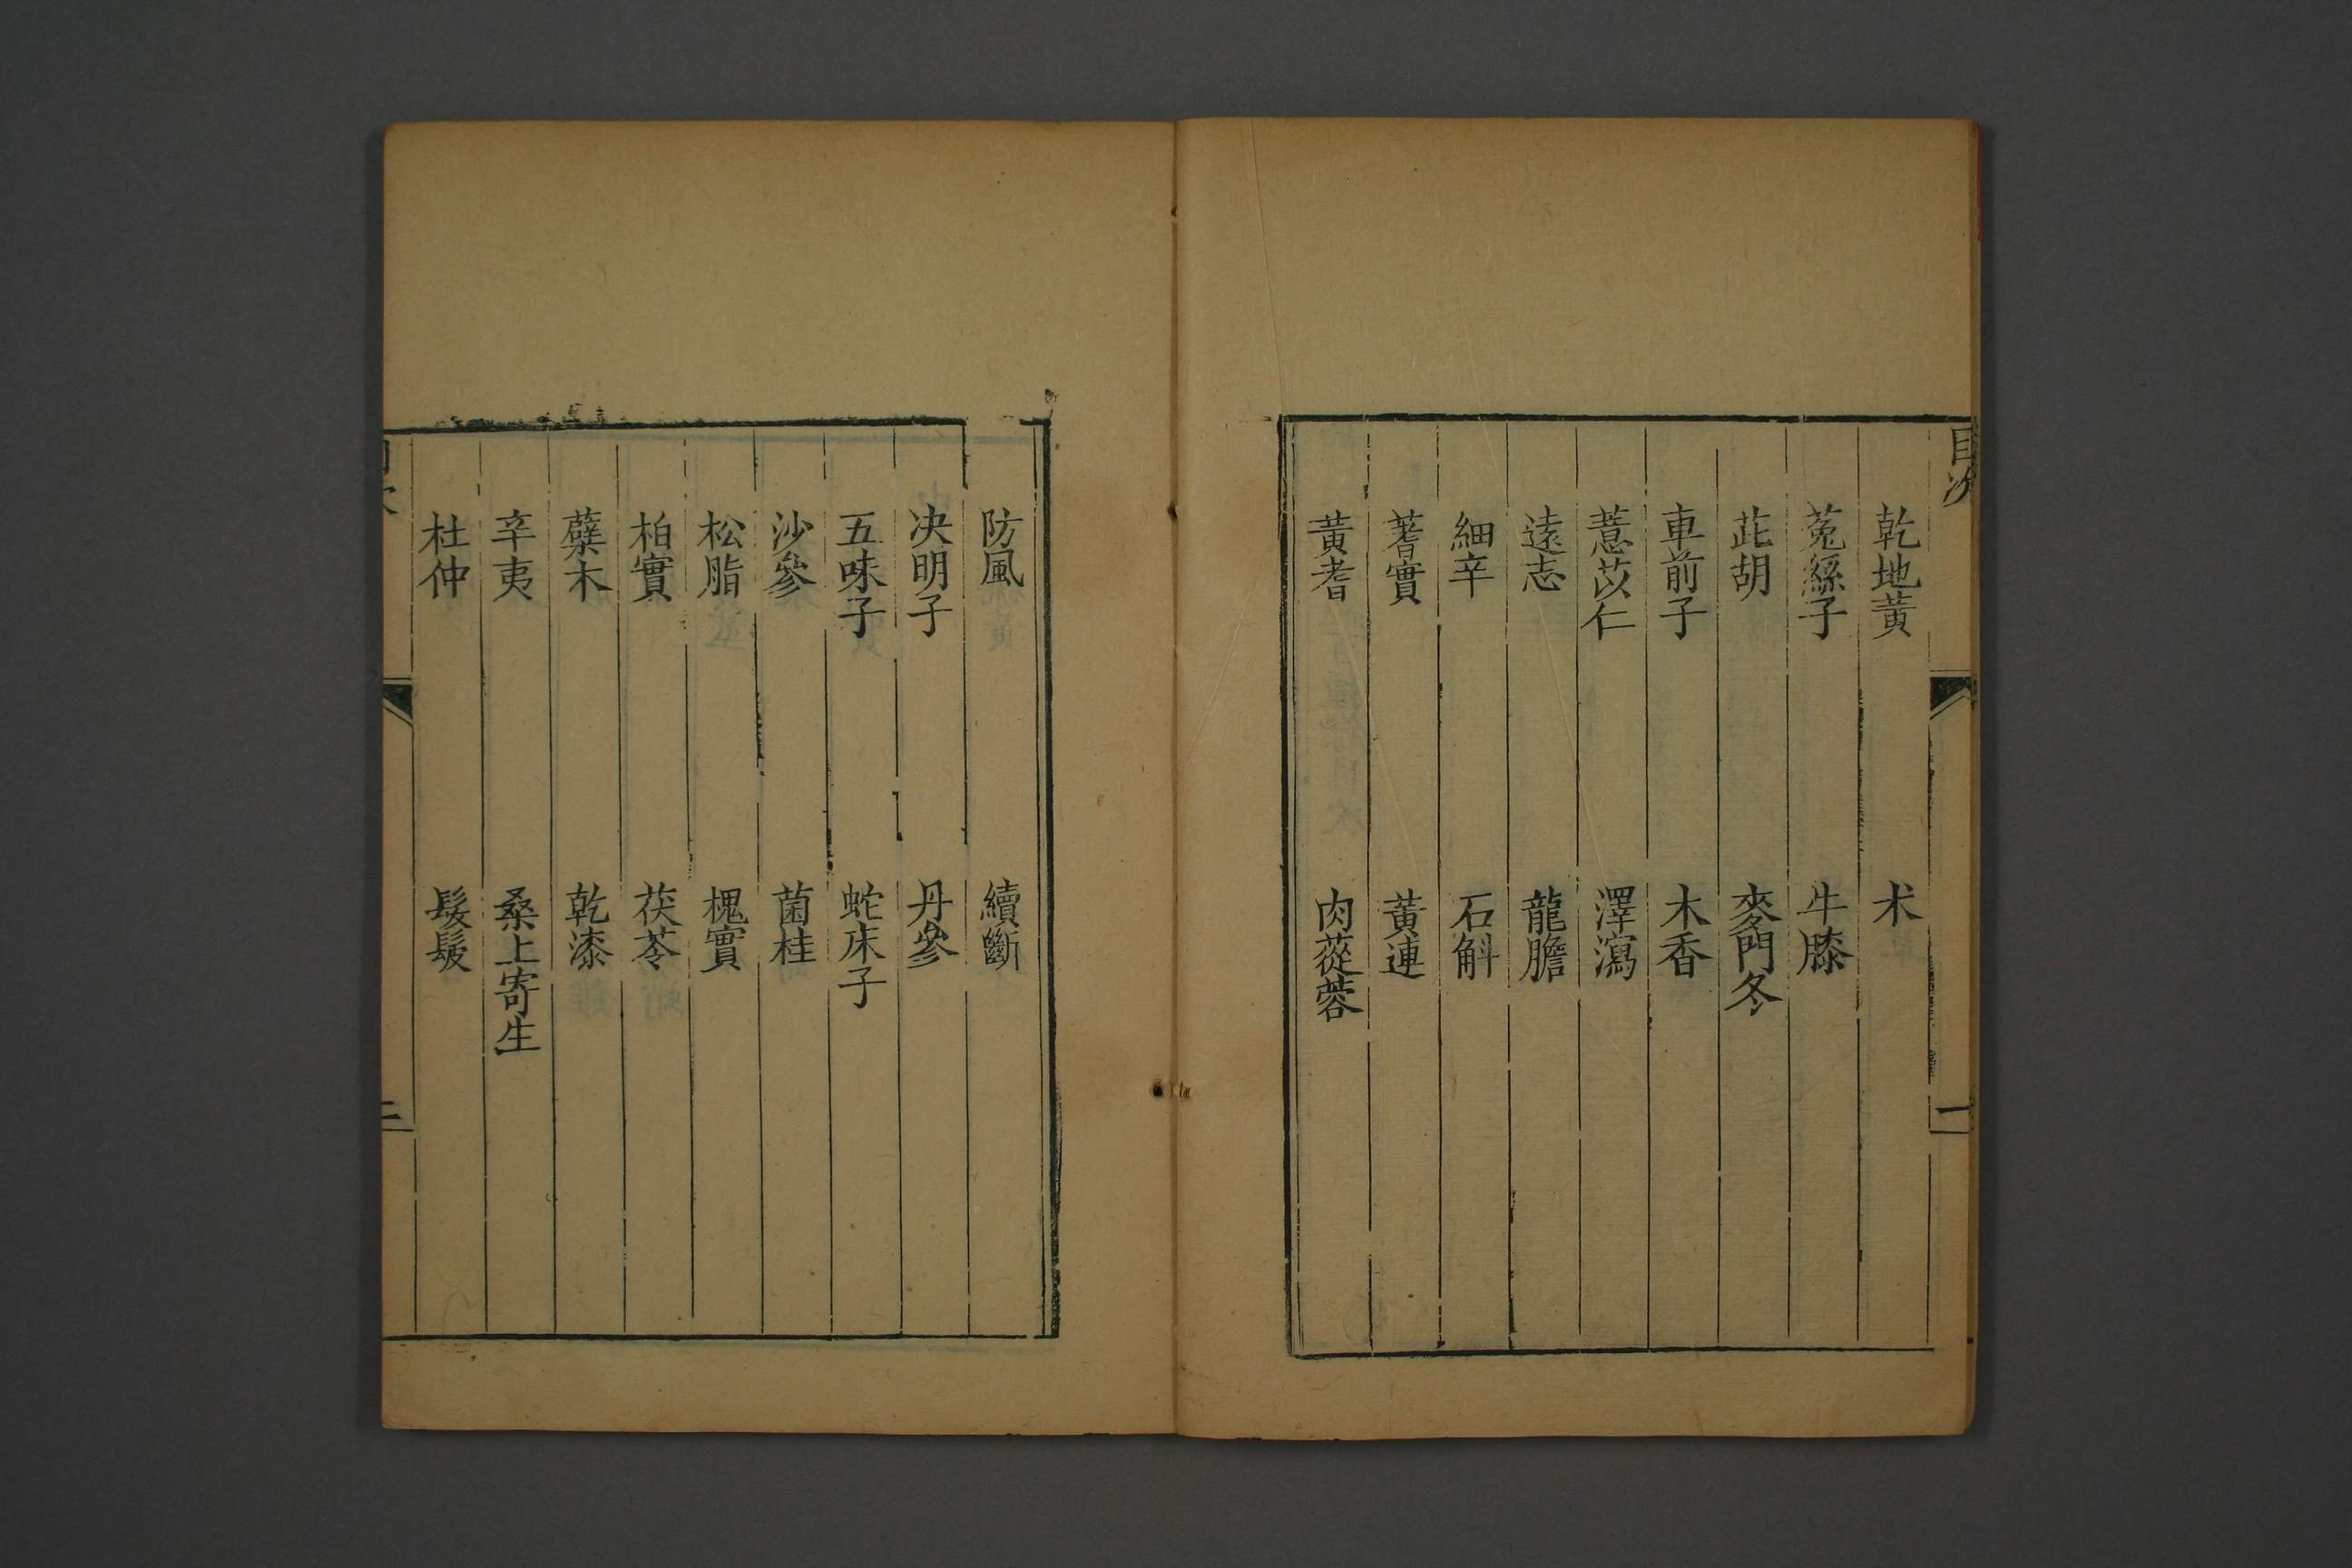 目次
一
乾地黃 术
菟絲子 牛膝
茈胡 麥門冬
車前子 木香
薏苡仁 澤瀉
遠志 龍膽
細辛 石斛
蓍實 黃連
黃耆 肉蓯蓉
防風 續斷
决明子 丹參
五味子 蛇床子
沙參 菌桂
松脂 槐實
柏實 茯苓
蘖木 乾漆
辛夷 桑上寄生
杜仲 髮髲